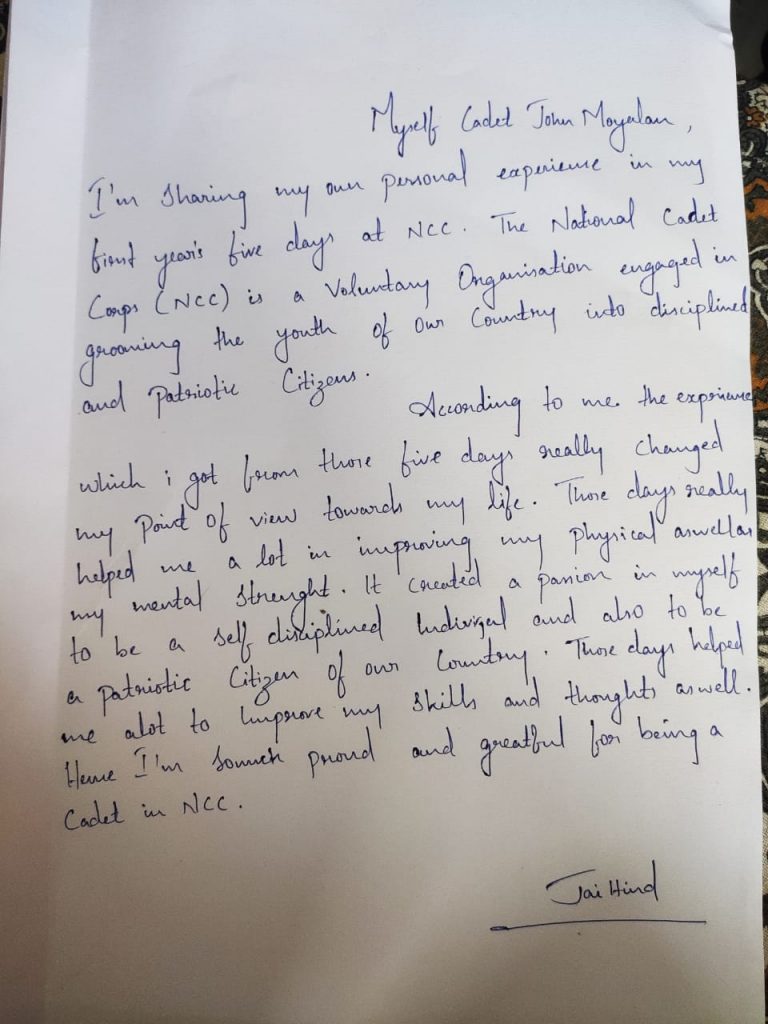 Myself Cadet John Moyalan,
I'm sharing my own personal experience in my
first year's five days at NCC. The National Cadet
Corps (NCC) is a Voluntary Organisation engaged in
grooming the youth of our Country into disciplined
and Patriotic Citizens.
According to me the exprience
which i got from those five days really changed
my Point of view towards my life. Those days really
helped me a lot in improving my physical aswellas
my mental strenght. It created a passion in myself
to be a self disciplined and also to be
a Patriotic Citizen of our Country. Those days helped
me alot to Improve my skills and thoughts aswell.
Hence I'm somuch proud and greatful for being a
Cadet in NCC.
Jai Hind